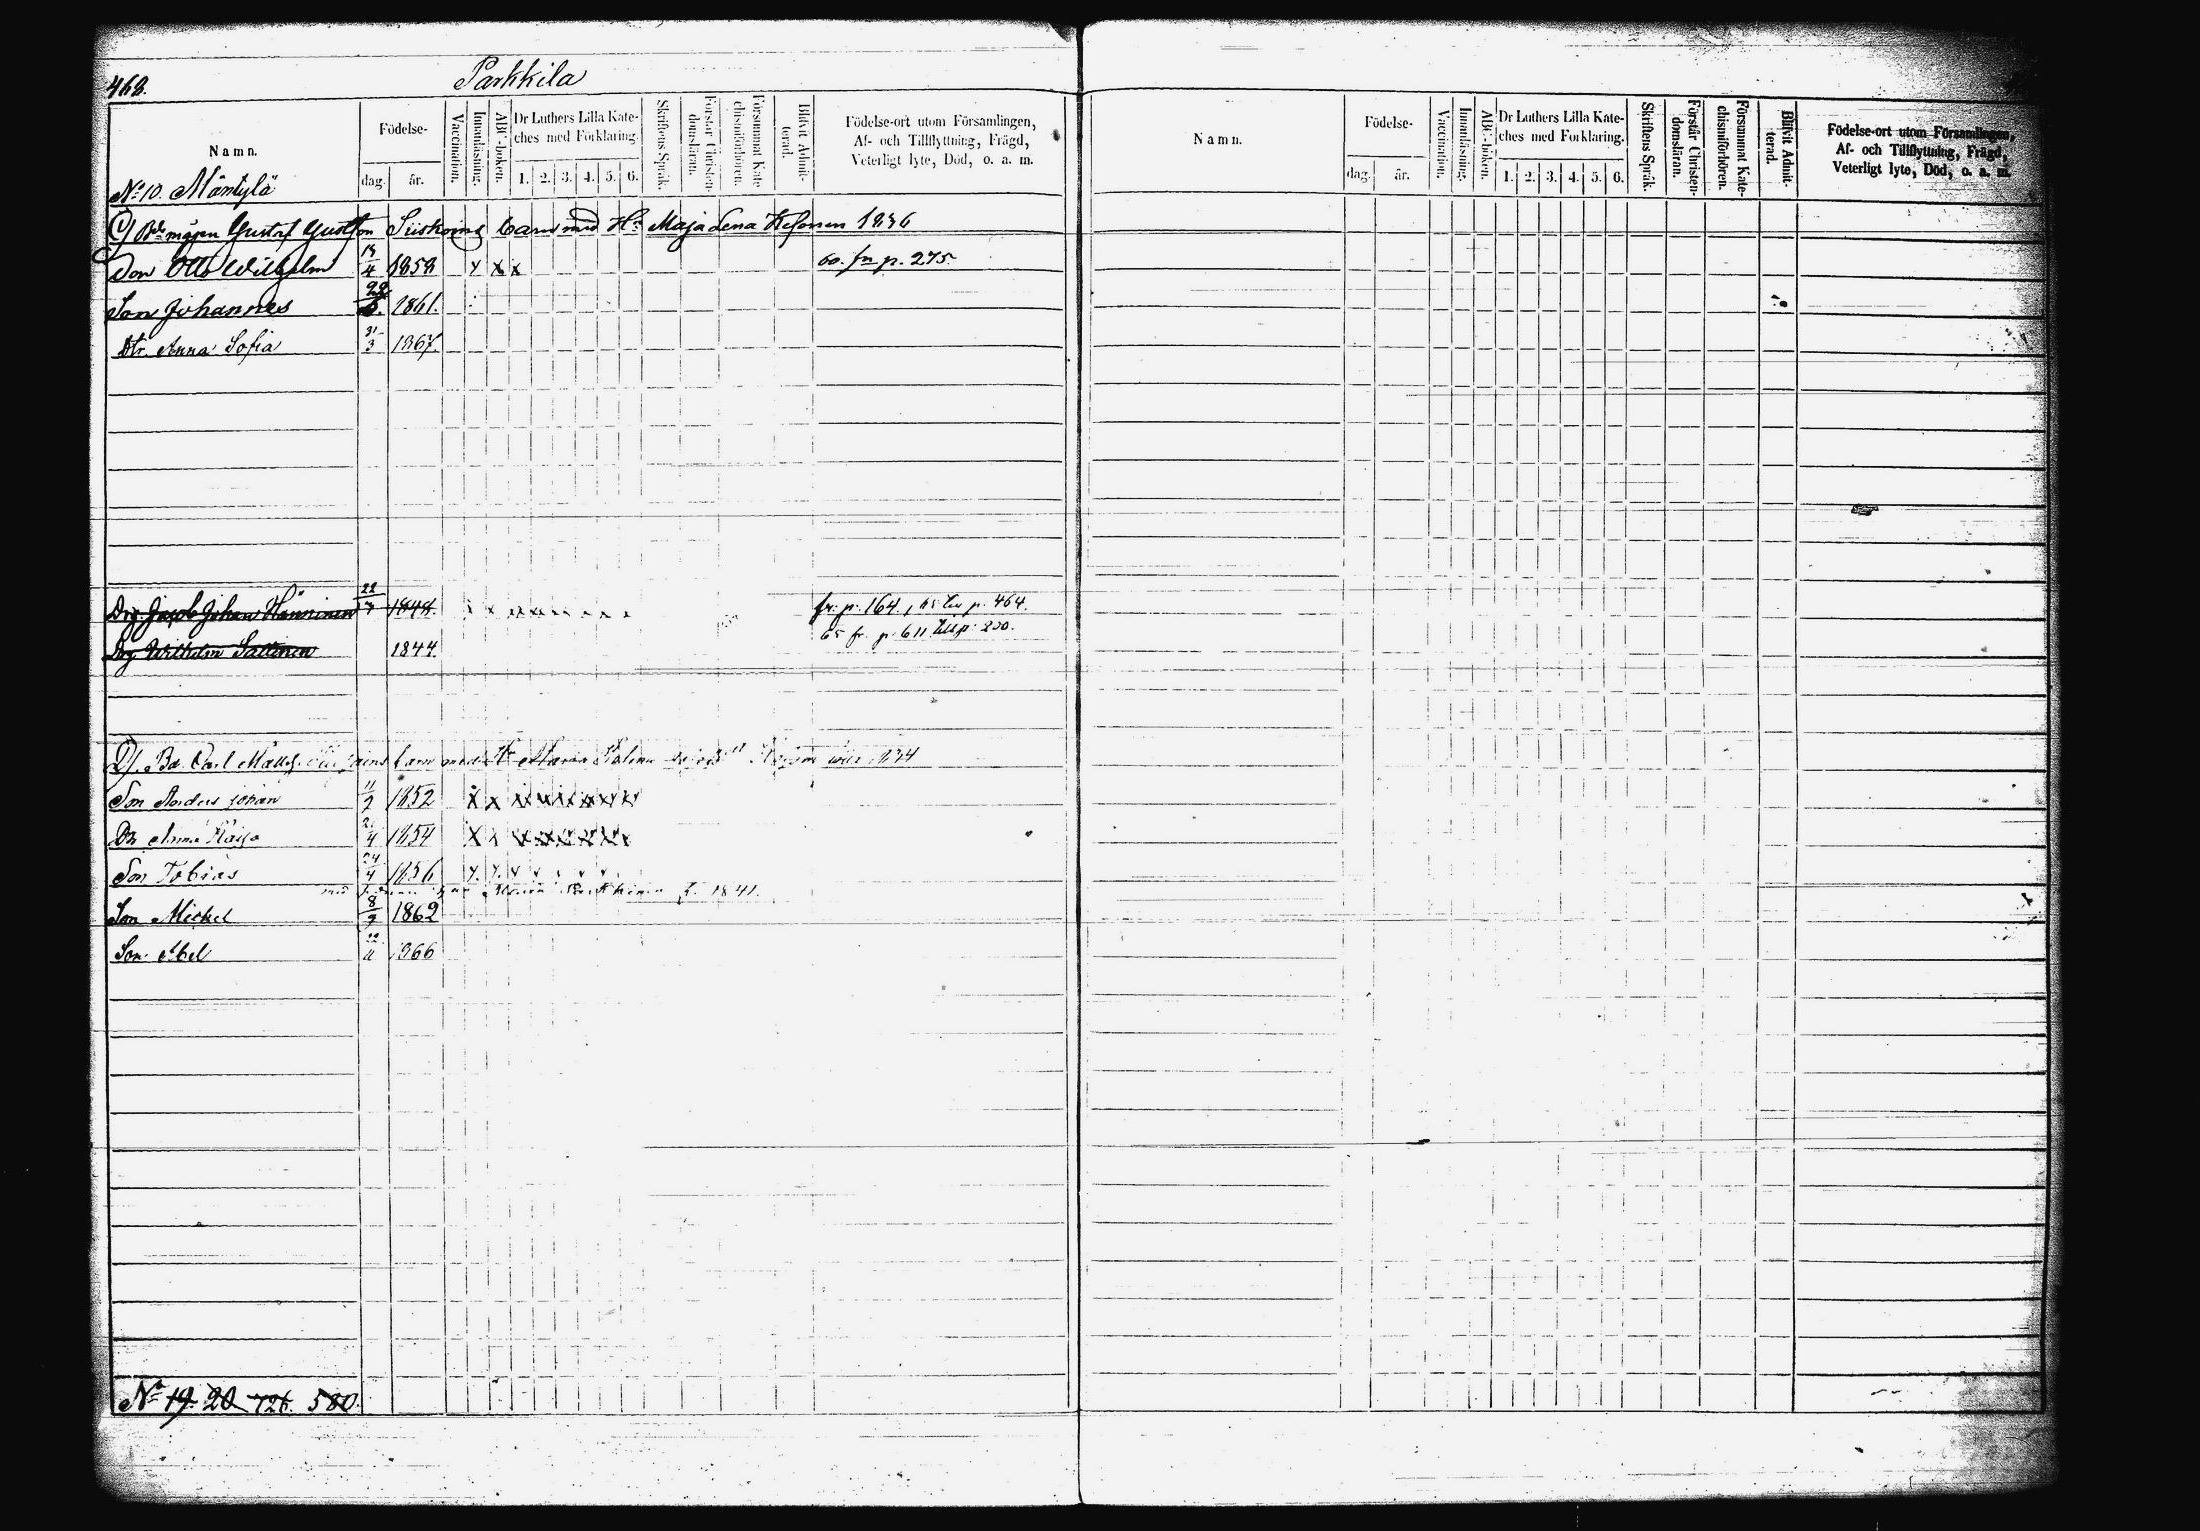 468.
Parkkila
Namn.
Födelse-
dag.
år.
Vaccination.
Innanläsning.
ABC-boken.
Dr Luthers Lilla Kate-
ches med Förklaring.
1. 2. 3. 4. 5. 6.
Skriftens Språk.
Förstår Christen-
domsläran.
Försummat Kate-
chismiförhören.
Blifvit Admit-
terad.
Födelse-ort utom Församlingen,
Af- och Tillflyttning, Frägd,
Veterligt lyte, Död, o. a. m.
No 10. Mäntylä
Gustaf barn med Hu Maja Lena 1836
Son Otto Wilhelm 4 1858 60. fr. p. 275.
Son Johannes 22 1861.
Dtr. Anna Sofia 31/3 1867.
Drg. Jacob Johan Hänninen 22 1848 fr. p. 164. p. 464.
Drg Wilhelm 1844. 65 fr. p. 611. till p. 200.
2/. Bd. Carl barn med Hu Maria
Son Anders Johan 11 1852 x x x x x x x x
Dr Anna 4 1854
Son Tobias 24/4 1856
Maria f. 1841.
Son Mickel 8 1862
Son Abel 22/11 1866
No 19. 20 726. 580.
Namn.
Födelse-
dag.
år.
Vaccination.
Innanläsning.
ABC-boken.
Dr Luthers Lilla Kate-
ches med Förklaring.
1. 2. 3. 4. 5. 6.
Skriftens Språk.
Förstår Christen-
domsläran.
Försummat Kate-
chismiförhören.
Blifvit Admit-
terad.
Födelse-ort utom Församlingen,
Af- och Tillflyttning, Frägd,
Veterligt lyte, Död, o. a. m.